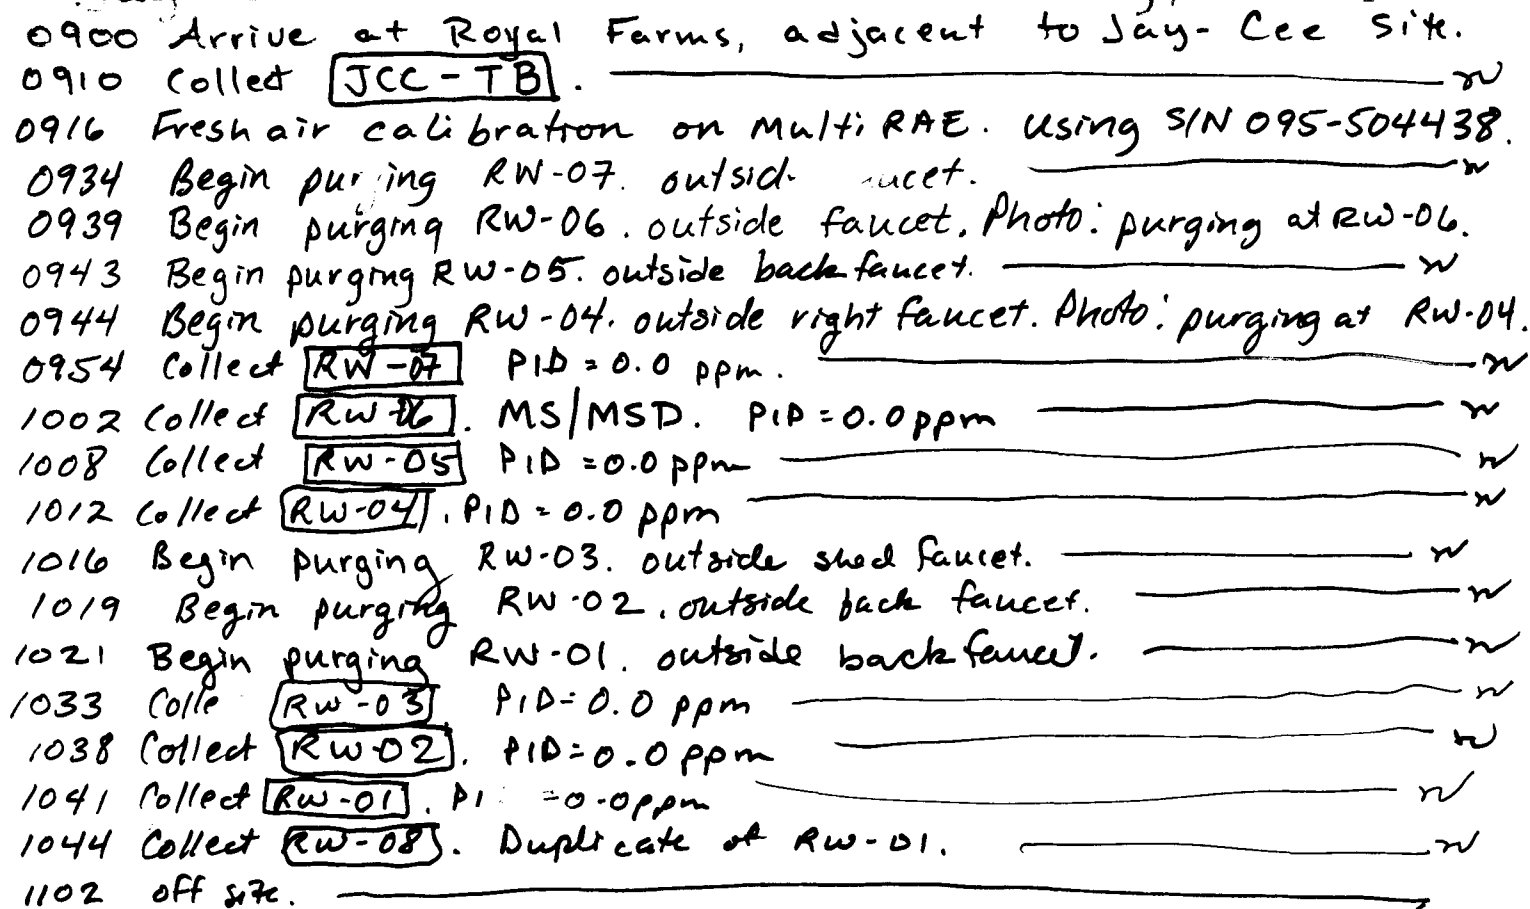 0900 Arrive at Royal Farms, adjacent to Jay-Cee Site.
0910 Collect JCC-TB.
0916 Fresh air calibration on MultiRAE. Using S/N 095-504438.
0934 Begin purging RW-07. outsid ucet.
0939 Begin purging RW-06. outside faucet. Photo: purging at RW-06.
0943 Begin purging RW-05. outside back faucet.
0944 Begin purging RW-04. outside right faucet. Photo: purging at RW-04.
0954 Collect RW-07 PID = 0.0 ppm.
1002 Collect RW-06. MS/MSD. PID = 0.0 ppm
1008 Collect RW-05 PID = 0.0 ppm
1012 Collect RW-04. PID = 0.0 ppm
1016 Begin purging RW-03. outside shed faucet.
1019 Begin purging RW-02. outside back faucet.
1021 Begin purging RW-01. outside back faucet.
1033 Colle RW-03 PID = 0.0 ppm
1038 Collect RW-02. PID = 0.0 ppm
1041 Collect RW-01. PI = 0.0 ppm
1044 Collect RW-08. Duplicate of RW-01.
1102 off site.